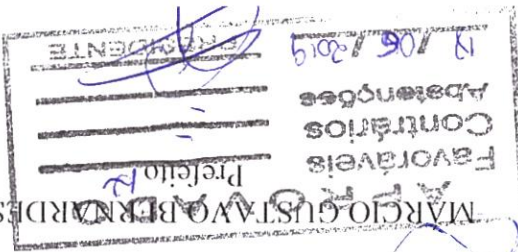 MÁRCIO GUSTAVO BERNARDES
APROVADO
Prefeito
Favoráveis
Contrários
Abstenções
/ 06 / 2019
PRESIDENTE